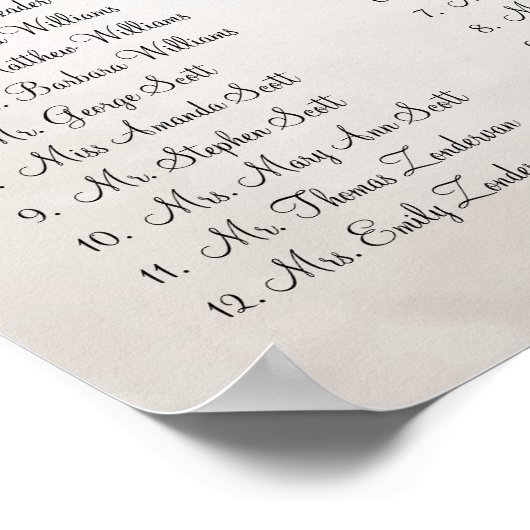 Williams
Matthew Williams
Barbara Williams
Mr. George Scott
Miss Amanda Scott
9. Mr. Stephen Scott
10. Mrs. Mary Ann Scott
11. Mr. Thomas Londervan
12. Mrs. Emily
7.
8.